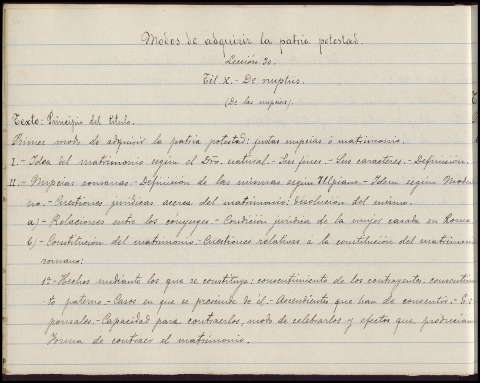 Modos de adquirir la patria potestad.
Lección 30.
Tít. X.- De nuptiis.
(De las nupcias).
Texto: Principio del título.
Primer modo de adquirir la patria potestad: justas nupcias ó matrimonio.
I.- Idea del matrimonio según el Dro. natural.- Sus fines.- Sus caracteres.- Definición.
II.- Nupcias romanas.- Definición de las mismas según Ulpiano.- Idem según Modesti
no.- Cuestiones jurídicas acerca del matrimonio: disolución del mismo.
a) - Relaciones entre los conyuges.- Condición jurídica de la mujer casada en Roma
b) - Constitución del matrimonio.- Cuestiones relativas a la constitución del matrimonio
romano:
1º- Hechos mediante los que se constituye: consentimiento de los contrayentes, consentimien
to paterno.- Casos en que se prescinde de él.- Ascendientes que han de consentir.- Es
ponsales.- Capacidad para contraerlos, modo de celebrarlos y efectos que producían
Forma de contraer el matrimonio.